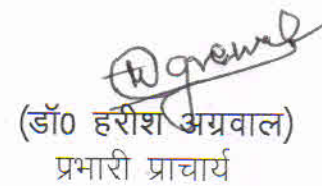 (डॉ0 हरीश अग्रवाल)
प्रभारी प्राचार्य